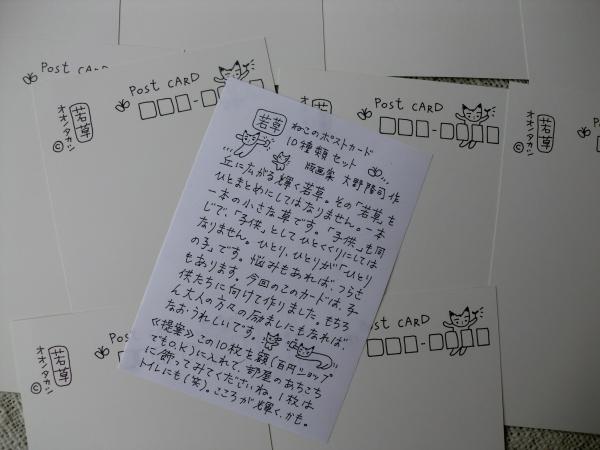 Post CARD
Post CARD
若草
オオノタカシ
©
Post CARD
若草
若草
オオノタカシ
©
若草 ねこのポストカード
10種類セット
版画家 大野隆司 作
丘に広がる輝く若草。その「若草」を
ひとまとめにしてはなりません。一本
一本の小さな草です。「子供」も同
じで、「子供」としてひとくくりにしては
なりません。ひとり、ひとりが「ひとり
の子」です。悩みもあれば、つらさ
もあります。今回のこのカードは、子
供たちに向けて作りました。もちろ
ん大人の方々の励ましにもなれば、
なお、うれしいです。
《提案》この10枚を額(百円ショップ
でもO.K)に入れて、部屋のあちこち
に飾ってみてくださいね。1枚は
トイレにも(笑)。こころが輝く、かも。
Post CARD
若草
オオノタカシ
©